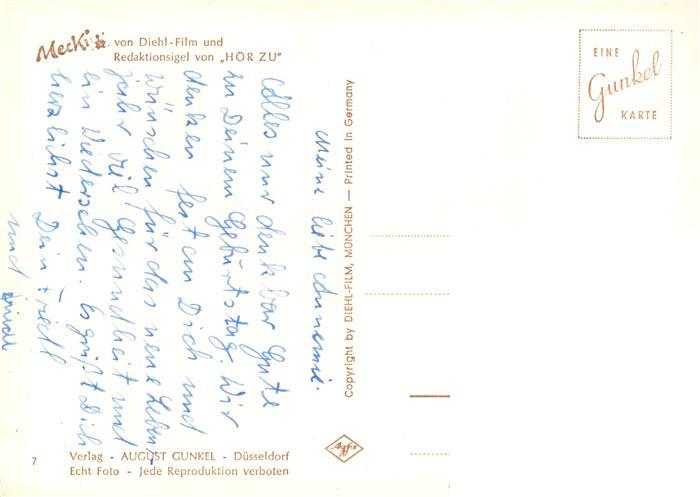 Mecki
von Diehl-Film und
Redaktionsigel von „HÖR ZU"
EINE
Gunkel
KARTE
Meine liebe Annemie.
Alles nur denkbar Gute
zu Deinem Geburtstag. Wir
denken fest an Dich und
wünschen für das neue Lebens-
jahr viel Gesundheit und
ein Wiedersehen. Es grüßt Dich
herzlichst Dein Friedl
und
Copyright by DIEHL-FILM, MÜNCHEN — Printed in Germany
Agfa
7
Verlag - AUGUST GUNKEL - Düsseldorf
Echt Foto - Jede Reproduktion verboten